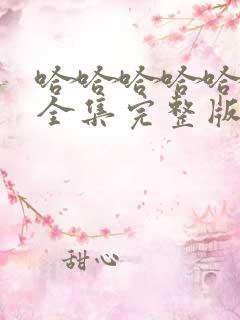 哈哈哈哈哈
全集完整版
甜心